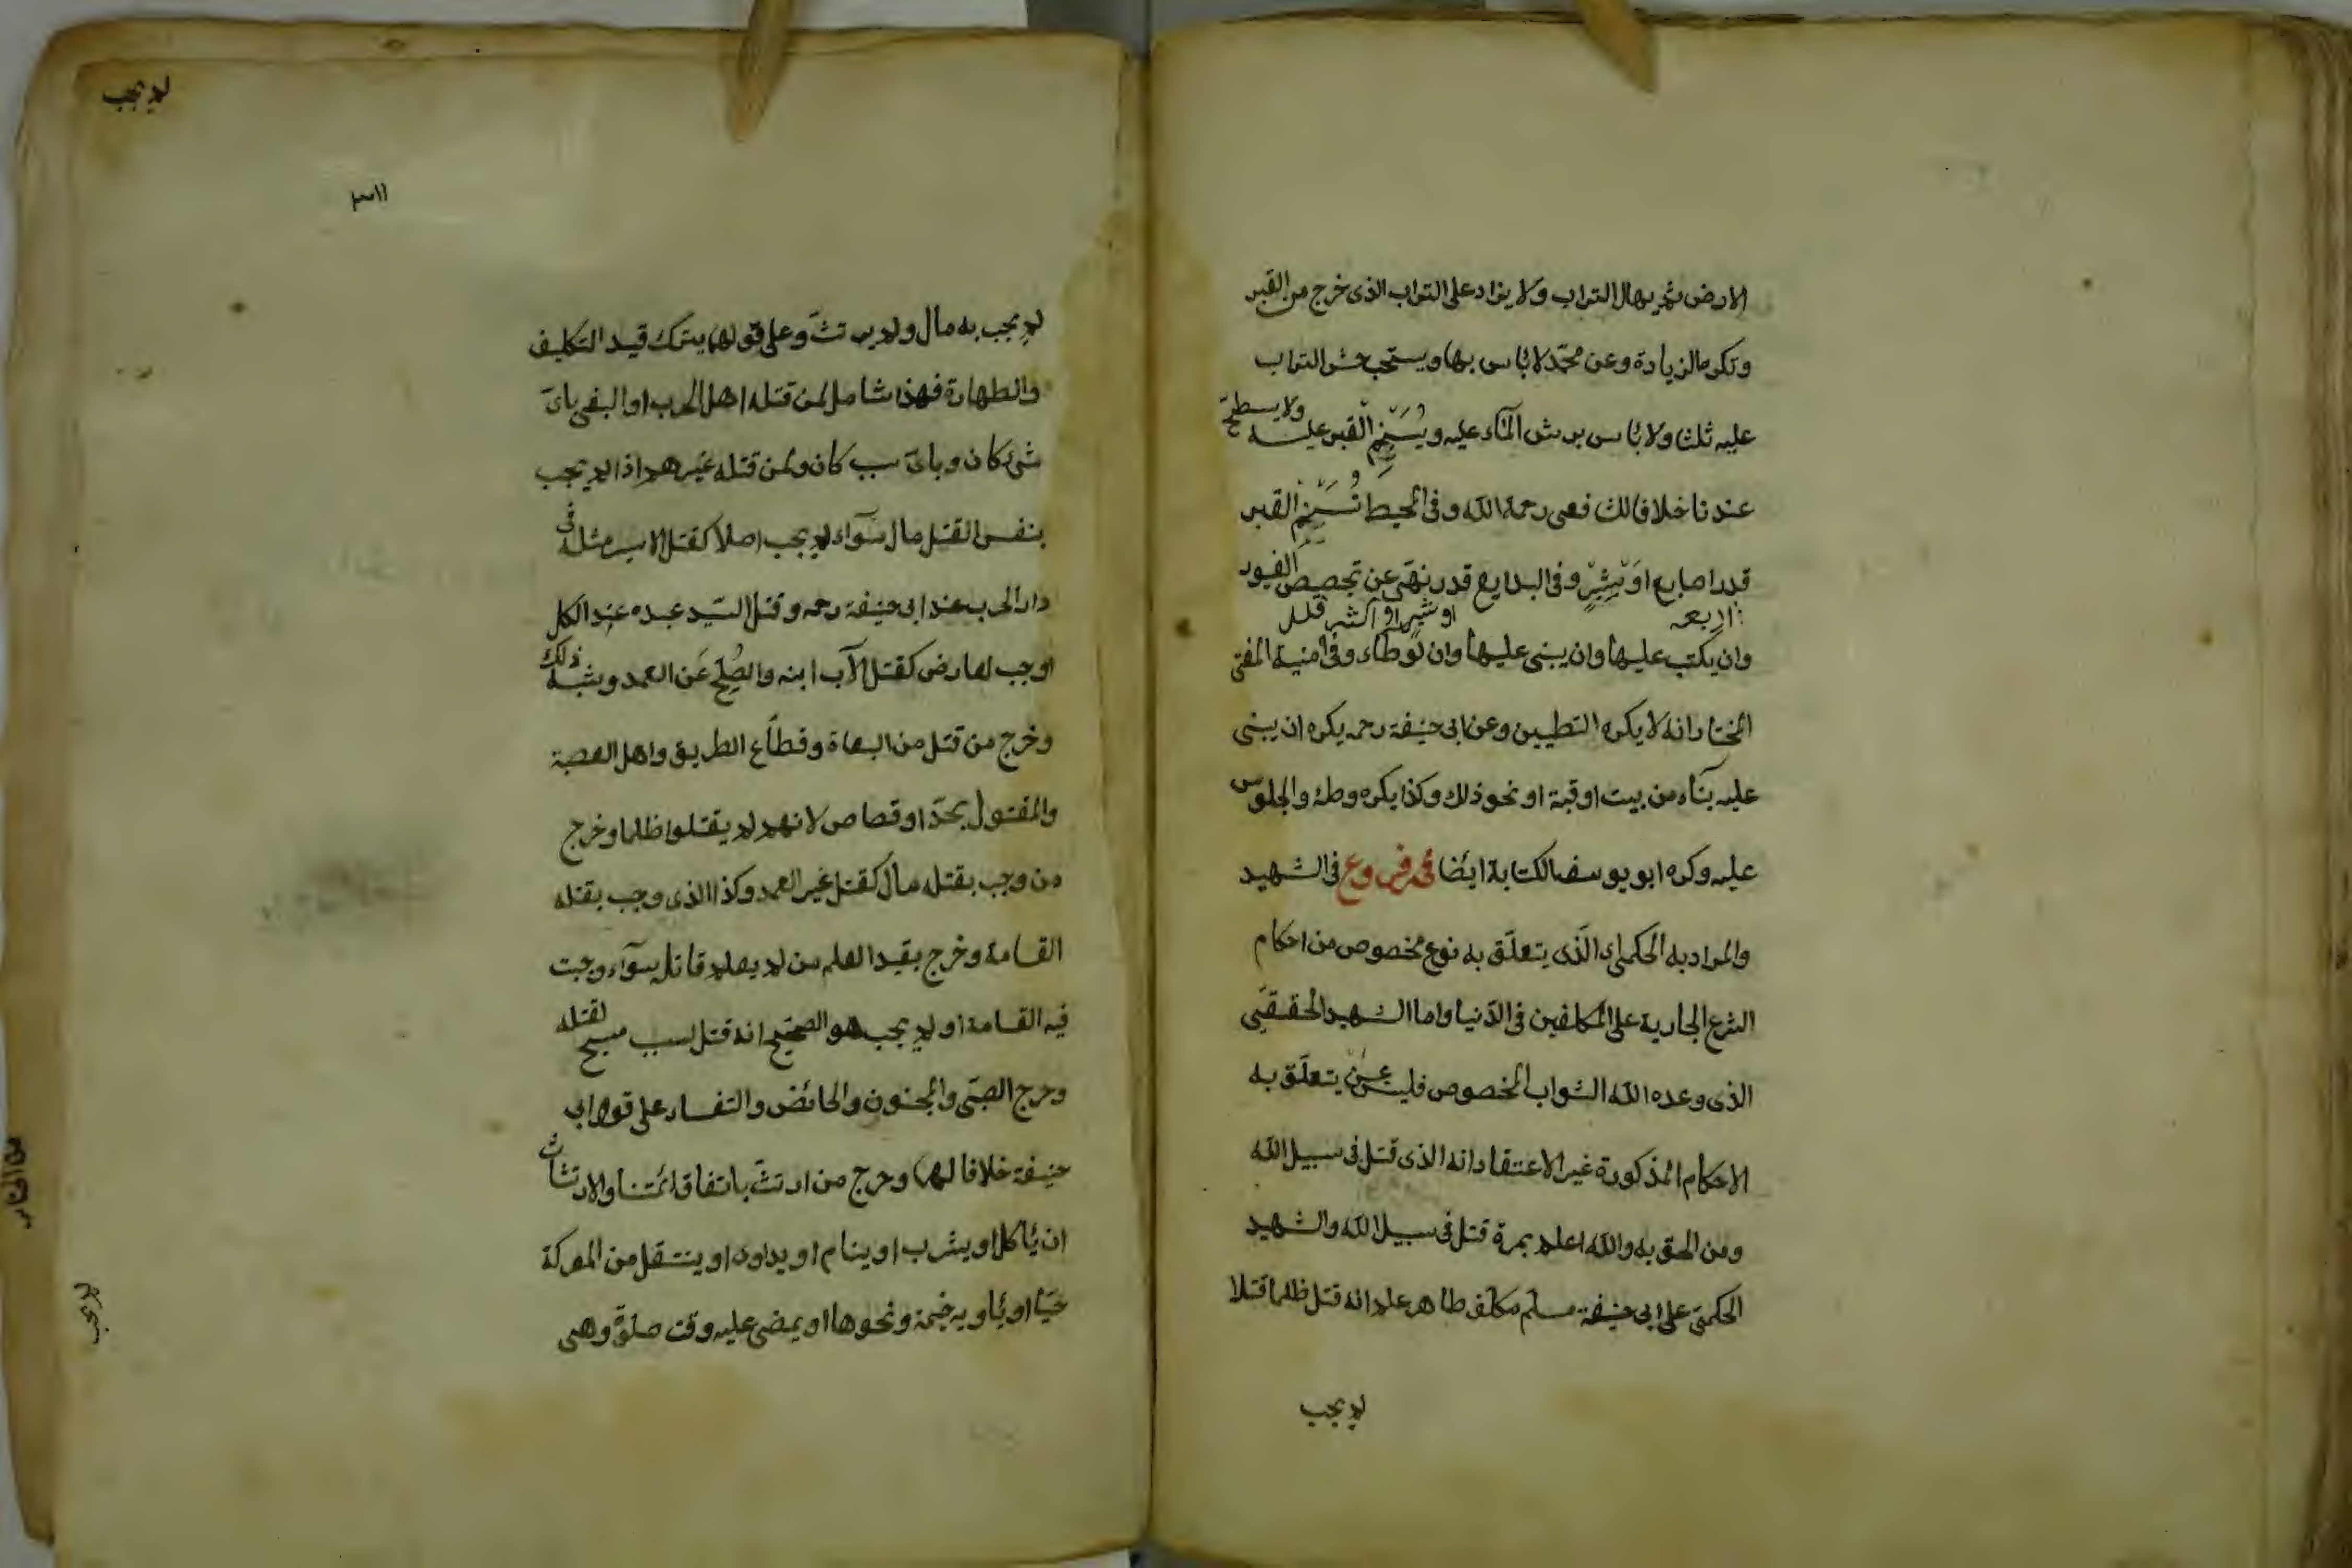 الارض ثم يهال التراب ولا يزاد على التراب الذى خرج من القبر
وتكره الزيادة وعن محمّد لا باس بها ويستحب حثى التراب
عليه ثلثا ولا باس برش المآء عليه ويُسَنَّم القبر عليه ولا يسطح
عندنا خلافا للشافعى رحمة الله وفى المحيط تُسَنَّم القبر
قدر اصابع او شِبْرٍ وفى البدايع قدر نهى عن تجصيص القبور
اربعه
او شبر او اكثر قليل
وان يكتب عليها وان يبنى عليها وان توطاء وفى منية المفتى
المختار انه لا يكره التطيين وعن ابى حنيفة رحمه يكره ان يبنى
عليه بنآء من بيت او قبة او نحو ذلك وكذا يكره وطئه والجلوس
عليه وكره ابو يوسف الكتابة ايضا فروع فى الشهيد
والمراد به الحكمى الذى يتعلّق به نوع مخصوص من احكام
الشرع الجارية على المكلفين فى الدّنيا واما الشهيد الحقيقى
الذى وعده الله الثواب المخصوص فليس يتعلّق به
الاحكام المذكورة غير الاعتقاد انه الذى قتل فى سبيل الله
ومن الحق به والله اعلم بمن قتل فى سبيل الله والشهيد
الحكمىّ على ابى حنيفة مسلم مكلف طاهر علم انه قتل ظلما قتلا
لم يجب
لم يجب
٣١١
لم يجب به مال ولم يرتثّ وعلى قولهما يترك قيد التكليف
والطهارة فهذا شامل لمن قتله اهل الحرب او البغى باىّ
شئ كان وباىّ سبب كان ولمن قتله غيرهم اذا لم يجب
بنفس القتل مال سوآء لم يجب اصلا كقتل الاسير مثله فى
دار الحرب عند ابى حنيفة رحمه وقتل السّيد عبده عند الكل
او وجب لعارض كقتل الاب ابنه والصُلح عَن العمد وشبه ذلك
وخرج من قتل من البغاة وقطّاع الطريق واهل العصبة
والمقتول بحدّ او قصاص لانهم لم يقتلوا ظلما وخرج
من وجب بقتله مال كقتل غير العمد وكذا الذى وجب بقتله
القسامة وخرج بقيد العلم من لم يعلم قاتله سوآء وجبت
فيه القسامة او لم يجب هو الصحيح انه قتل لسبب مبيح لقتله
وخرج الصبّى والمجنون والحائض والنفساء على قول ابى
حنيفة خلافا لهما وخرج من ارتثّ باتفاق ائمتنا والارتثاث
ان ياكل او يشرب او ينام او يداوى او ينتقل من المعركة
حيّا او ياويه خيمة ونحوها او يمضى عليه وقت صلوة وهى
لم يجب